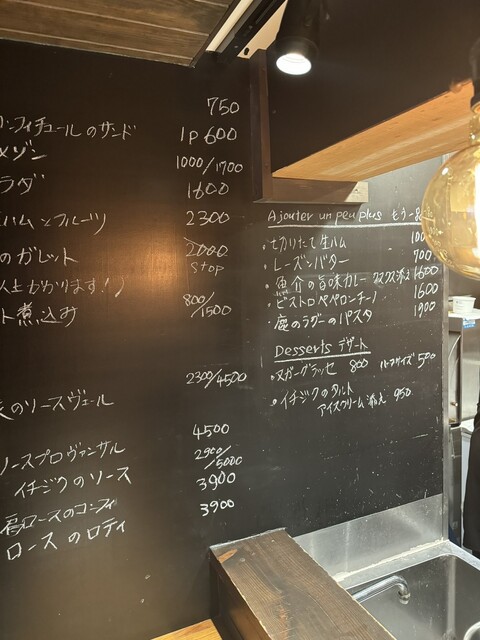 750
コンフィチュールのサンド 1P600
メゾン 1000/1700
ラダ 1600
ハムとフルーツ 2300
のガレット 2000
Stop
以上かかります！）
ト煮込み 800/1500
のソースヴェール 2300/4500
4500
ソースプロヴァンサル 2900/5000
イチジクのソース 3900
肩ロースのコンフィ 3900
ロースのロティ
Ajouter un peu plus もう一品
・切りたて生ハム 100
・レーズンバター 700
・魚介の旨味カレー クスクス添え 1600
・ビストロペペロンチーノ 1600
・鹿のラグーのパスタ 1900
Desserts デザート
・ヌガーグラッセ 800 ハーフサイズ 500
・イチジクのタルト
アイスクリーム添え 950